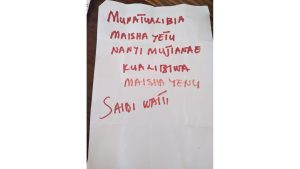 MUNATUALIBIA
MAISHA YETU
NANYI MUJIANAE
KUALIBIWA
MAISHA YENU
SAIDI WATU